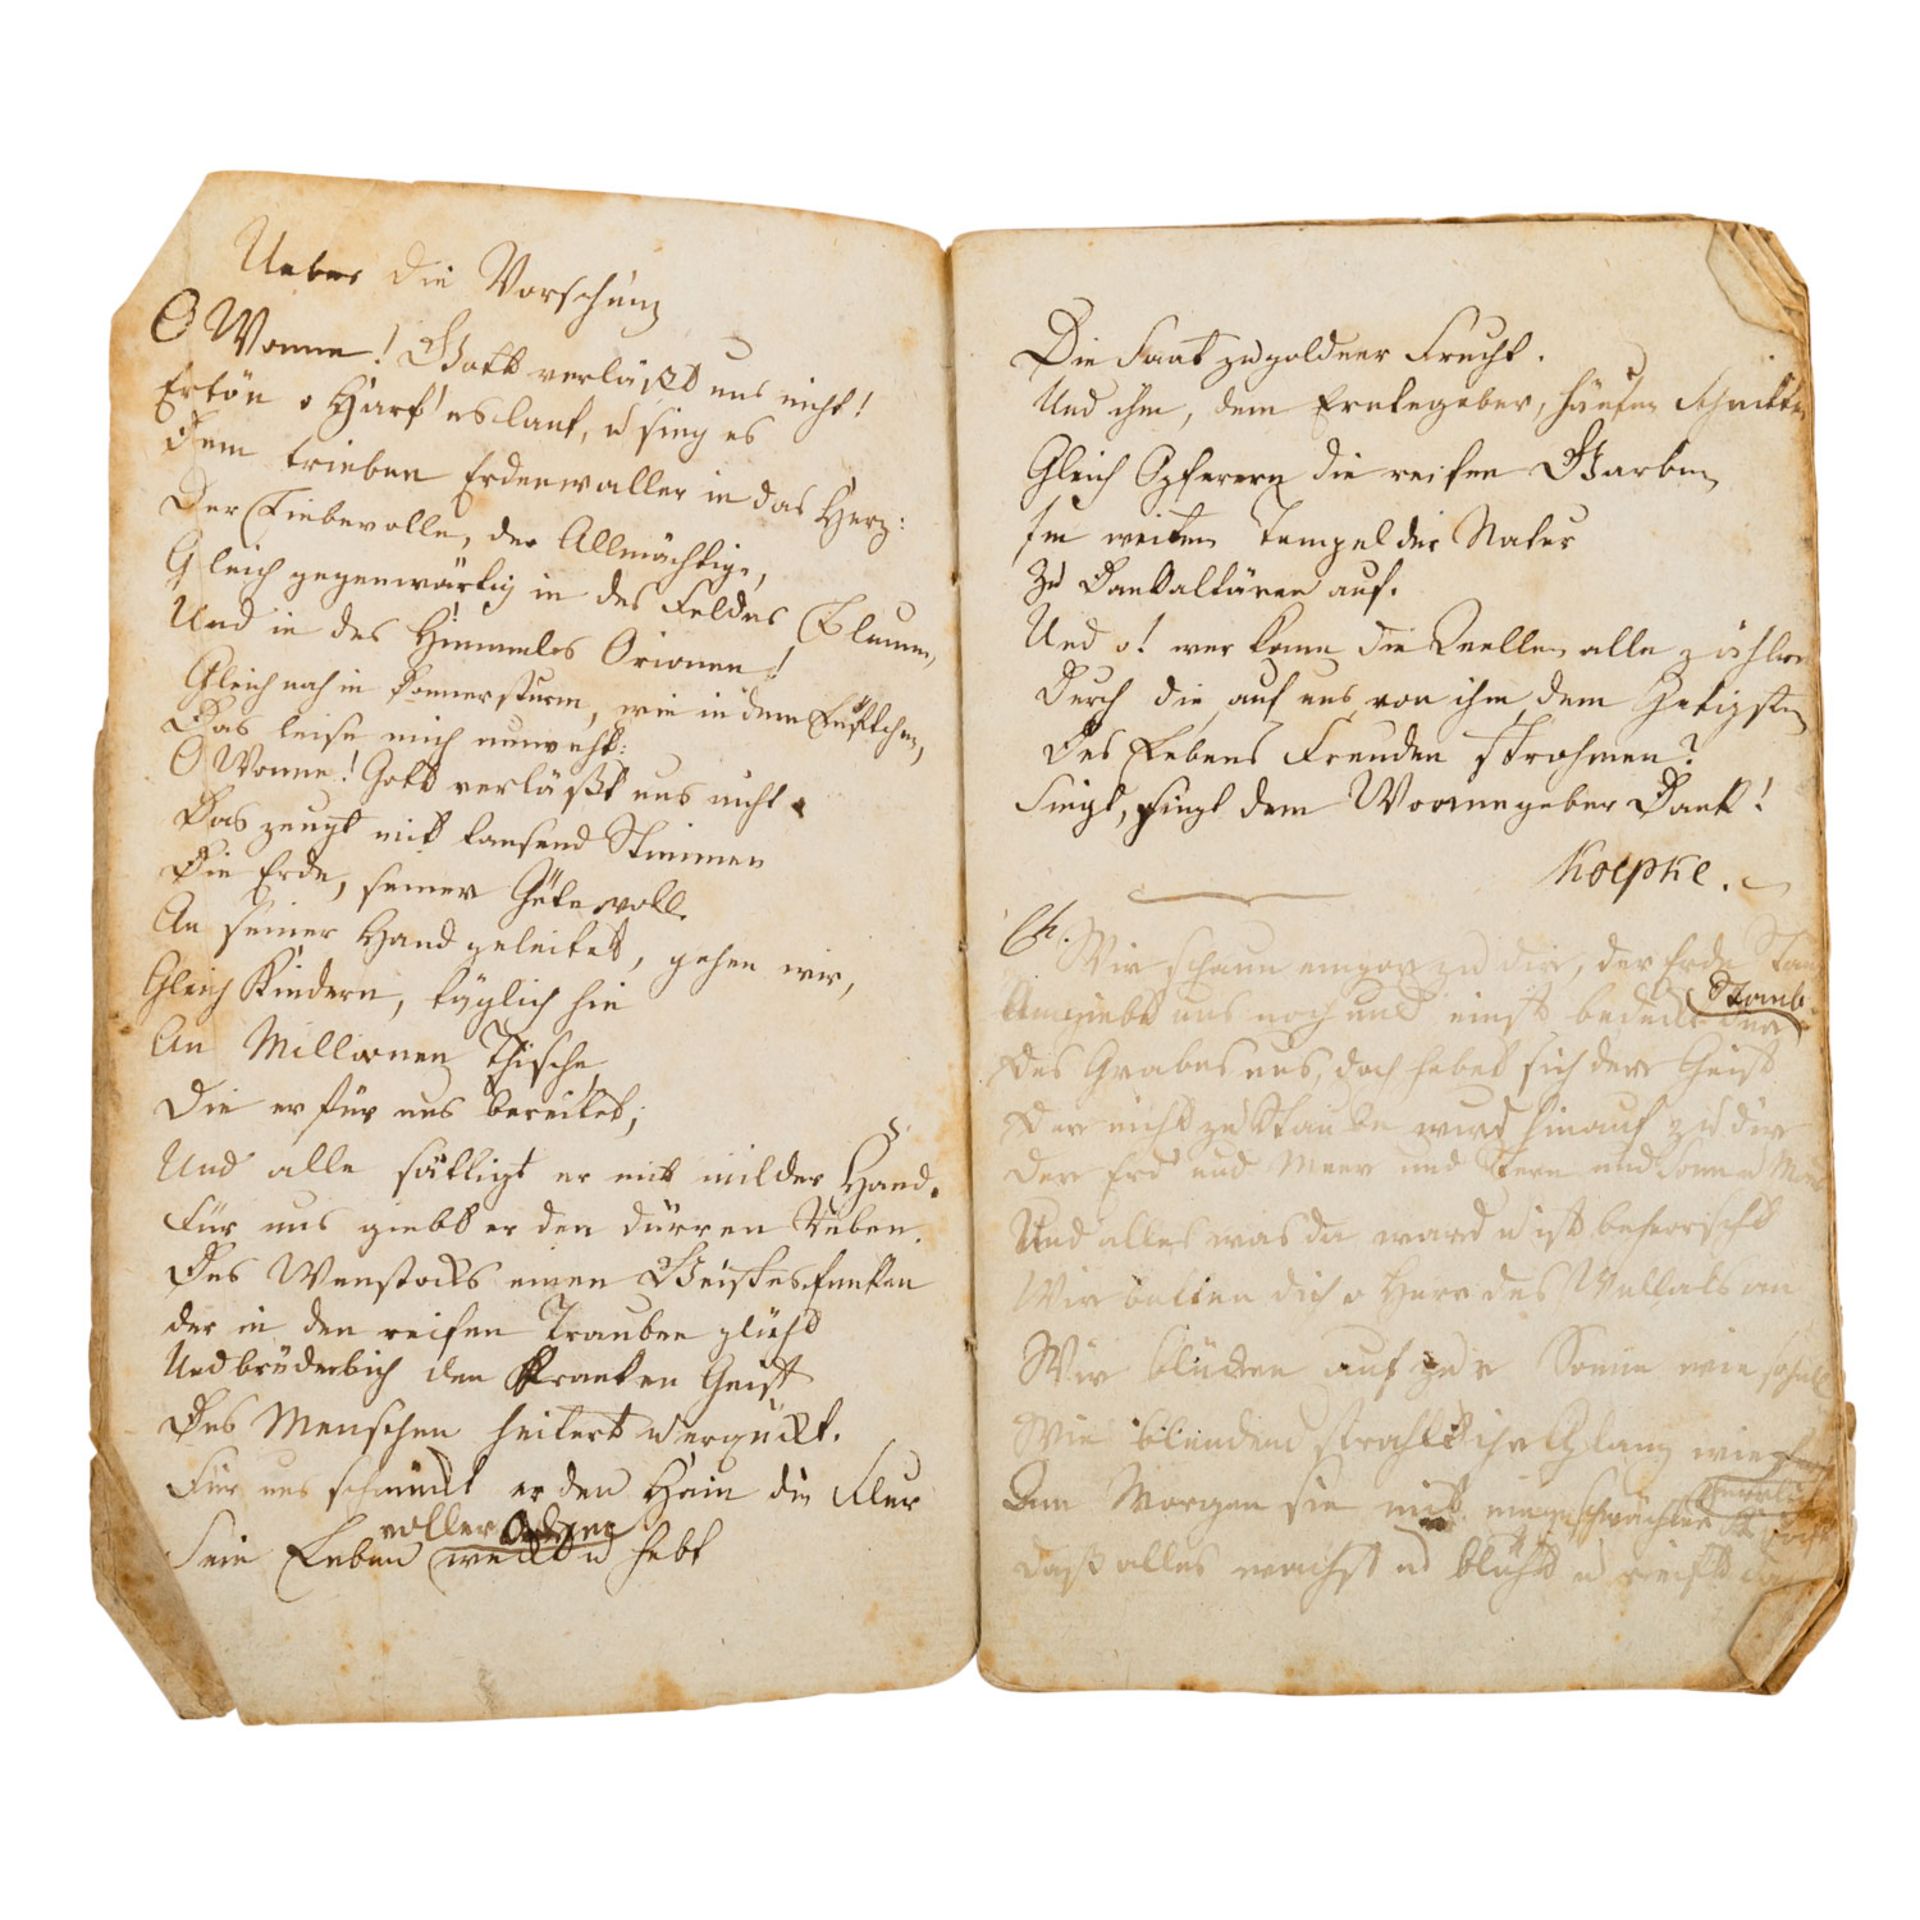 Ueber die Vorsehung
O Wonne! Gott verläßt uns nicht!
Ertön o Harf' es laut, u sing es
Dem trüben Erdenwaller in das Herz:
Der Liebevolle, der Allmächtige,
Gleich gegenwärtig in des Feldes Blumen,
Und in des Himmels Orionen!
Gleich nah in Donnersturm, wie in dem Lüftchen,
Das leise mich umweht:
O Wonne! Gott verläßt uns nicht
Das zeugt mit tausend Stimmen
Die Erde, seiner Güte voll.
An seiner Hand geleitet, gehen wir,
Gleich Kindern, täglich hin
An Millionen Thische
Die er für uns bereitet;
Und alle sättigt er mit milder Hand.
Für uns giebt er den dürren Reben
Des Wenstocks einen Geistesfunken
der in den reifen Trauben glüht
Und brüderlich den Kranken Geist
Des Menschen heitert u erquickt.
Für uns schmückt er den Hain die Flur
voller
Sein Leben weckt u hebt
Die Saat zu goldner Frucht.
Und ihm, dem Erntegeber, häufen Schnitter
Gleich Opferern die reifen Garben
Im weiten Tempel der Natur
Zu Dankaltären auf.
Und o! wer kann die Quellen alle zählen
Durch die auf uns von ihm dem Gütigsten
Des Lebens Freuden strohmen?
Singt, singt dem Wonnegeber Dank!
Koepke.
Ch.
Wir schaun empor zu dir, der Erde
Staub
Umgiebt uns noch und einst bedeckt der
Des Grabes uns, doch hebet sich der Geist
Der nicht zu Staube wird hinauf zu dir
Der Erd und Meer und Stern und Sonn u
Und alles was da ward u ist beherrscht
Wir betten dich o Herr des Weltals an
Wir blicken auf zur Sonne wie
Wie blendend strahlt ihr Glanz wie
herrlich
Am Morgen sie mit ungeschwächter
Daß alles wachst u blüht u reift